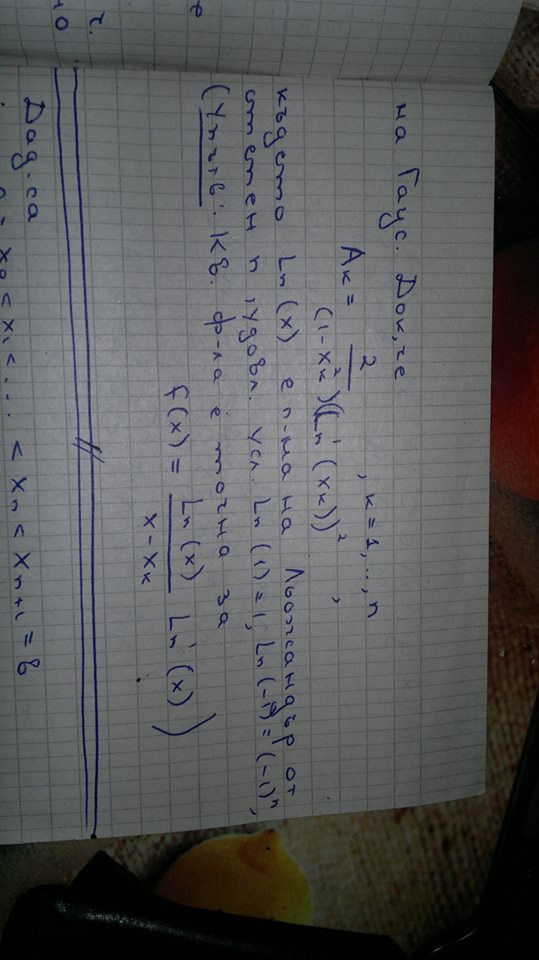 на Гаус. Док, че
Aк = 2 / (1 - xк²)(Ln'(xк))² , к = 1, ..., n
където Ln(x) е п-ма на Льожандър от
степен n, удовл. усл. Ln(1) = 1, Ln(-1) = (-1)ⁿ,
(Упътв.: кв. ф-ла е точна за
f(x) = Ln(x) / x - xк Ln'(x) )
Дад. са
x₀ < x₁ < ... < xn < xn+1 = b